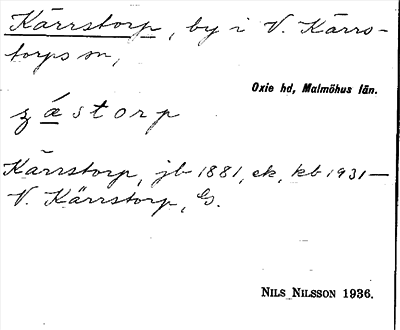 Kärrstorp, by i V. Kärrs-
torps sn,
Oxie hd, Malmöhus län.
Kärrstorp, jb 1881, ek, kb 1931—
V. Kärrstorp, G.
NILS NILSSON 1936.